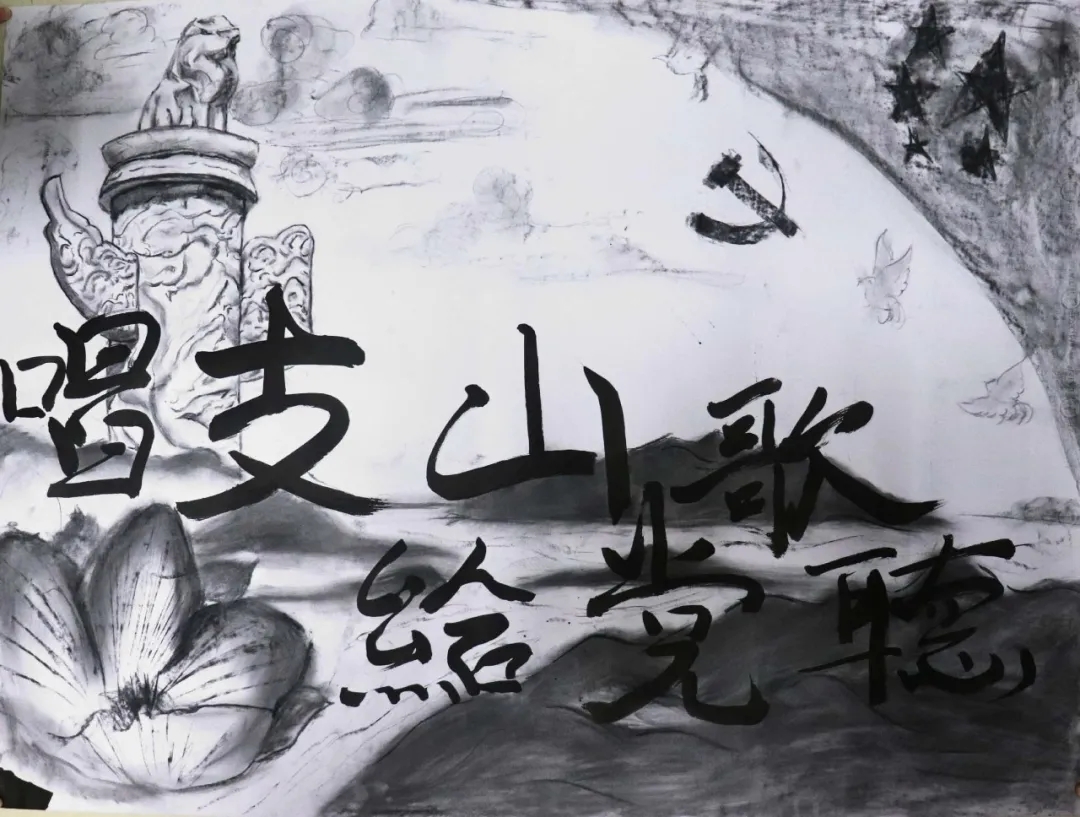 唱支山歌
給党聽